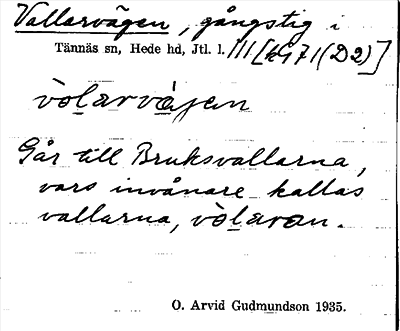 Vallarvägen, gångstig i
Tännäs sn, Hede hd, Jtl. l. III [kG71(D2)]
vòlarvàjen
Går till Bruksvallarna,
vars invånare kallas
vallarna, vòlaran.
O. Arvid Gudmundson 1935.